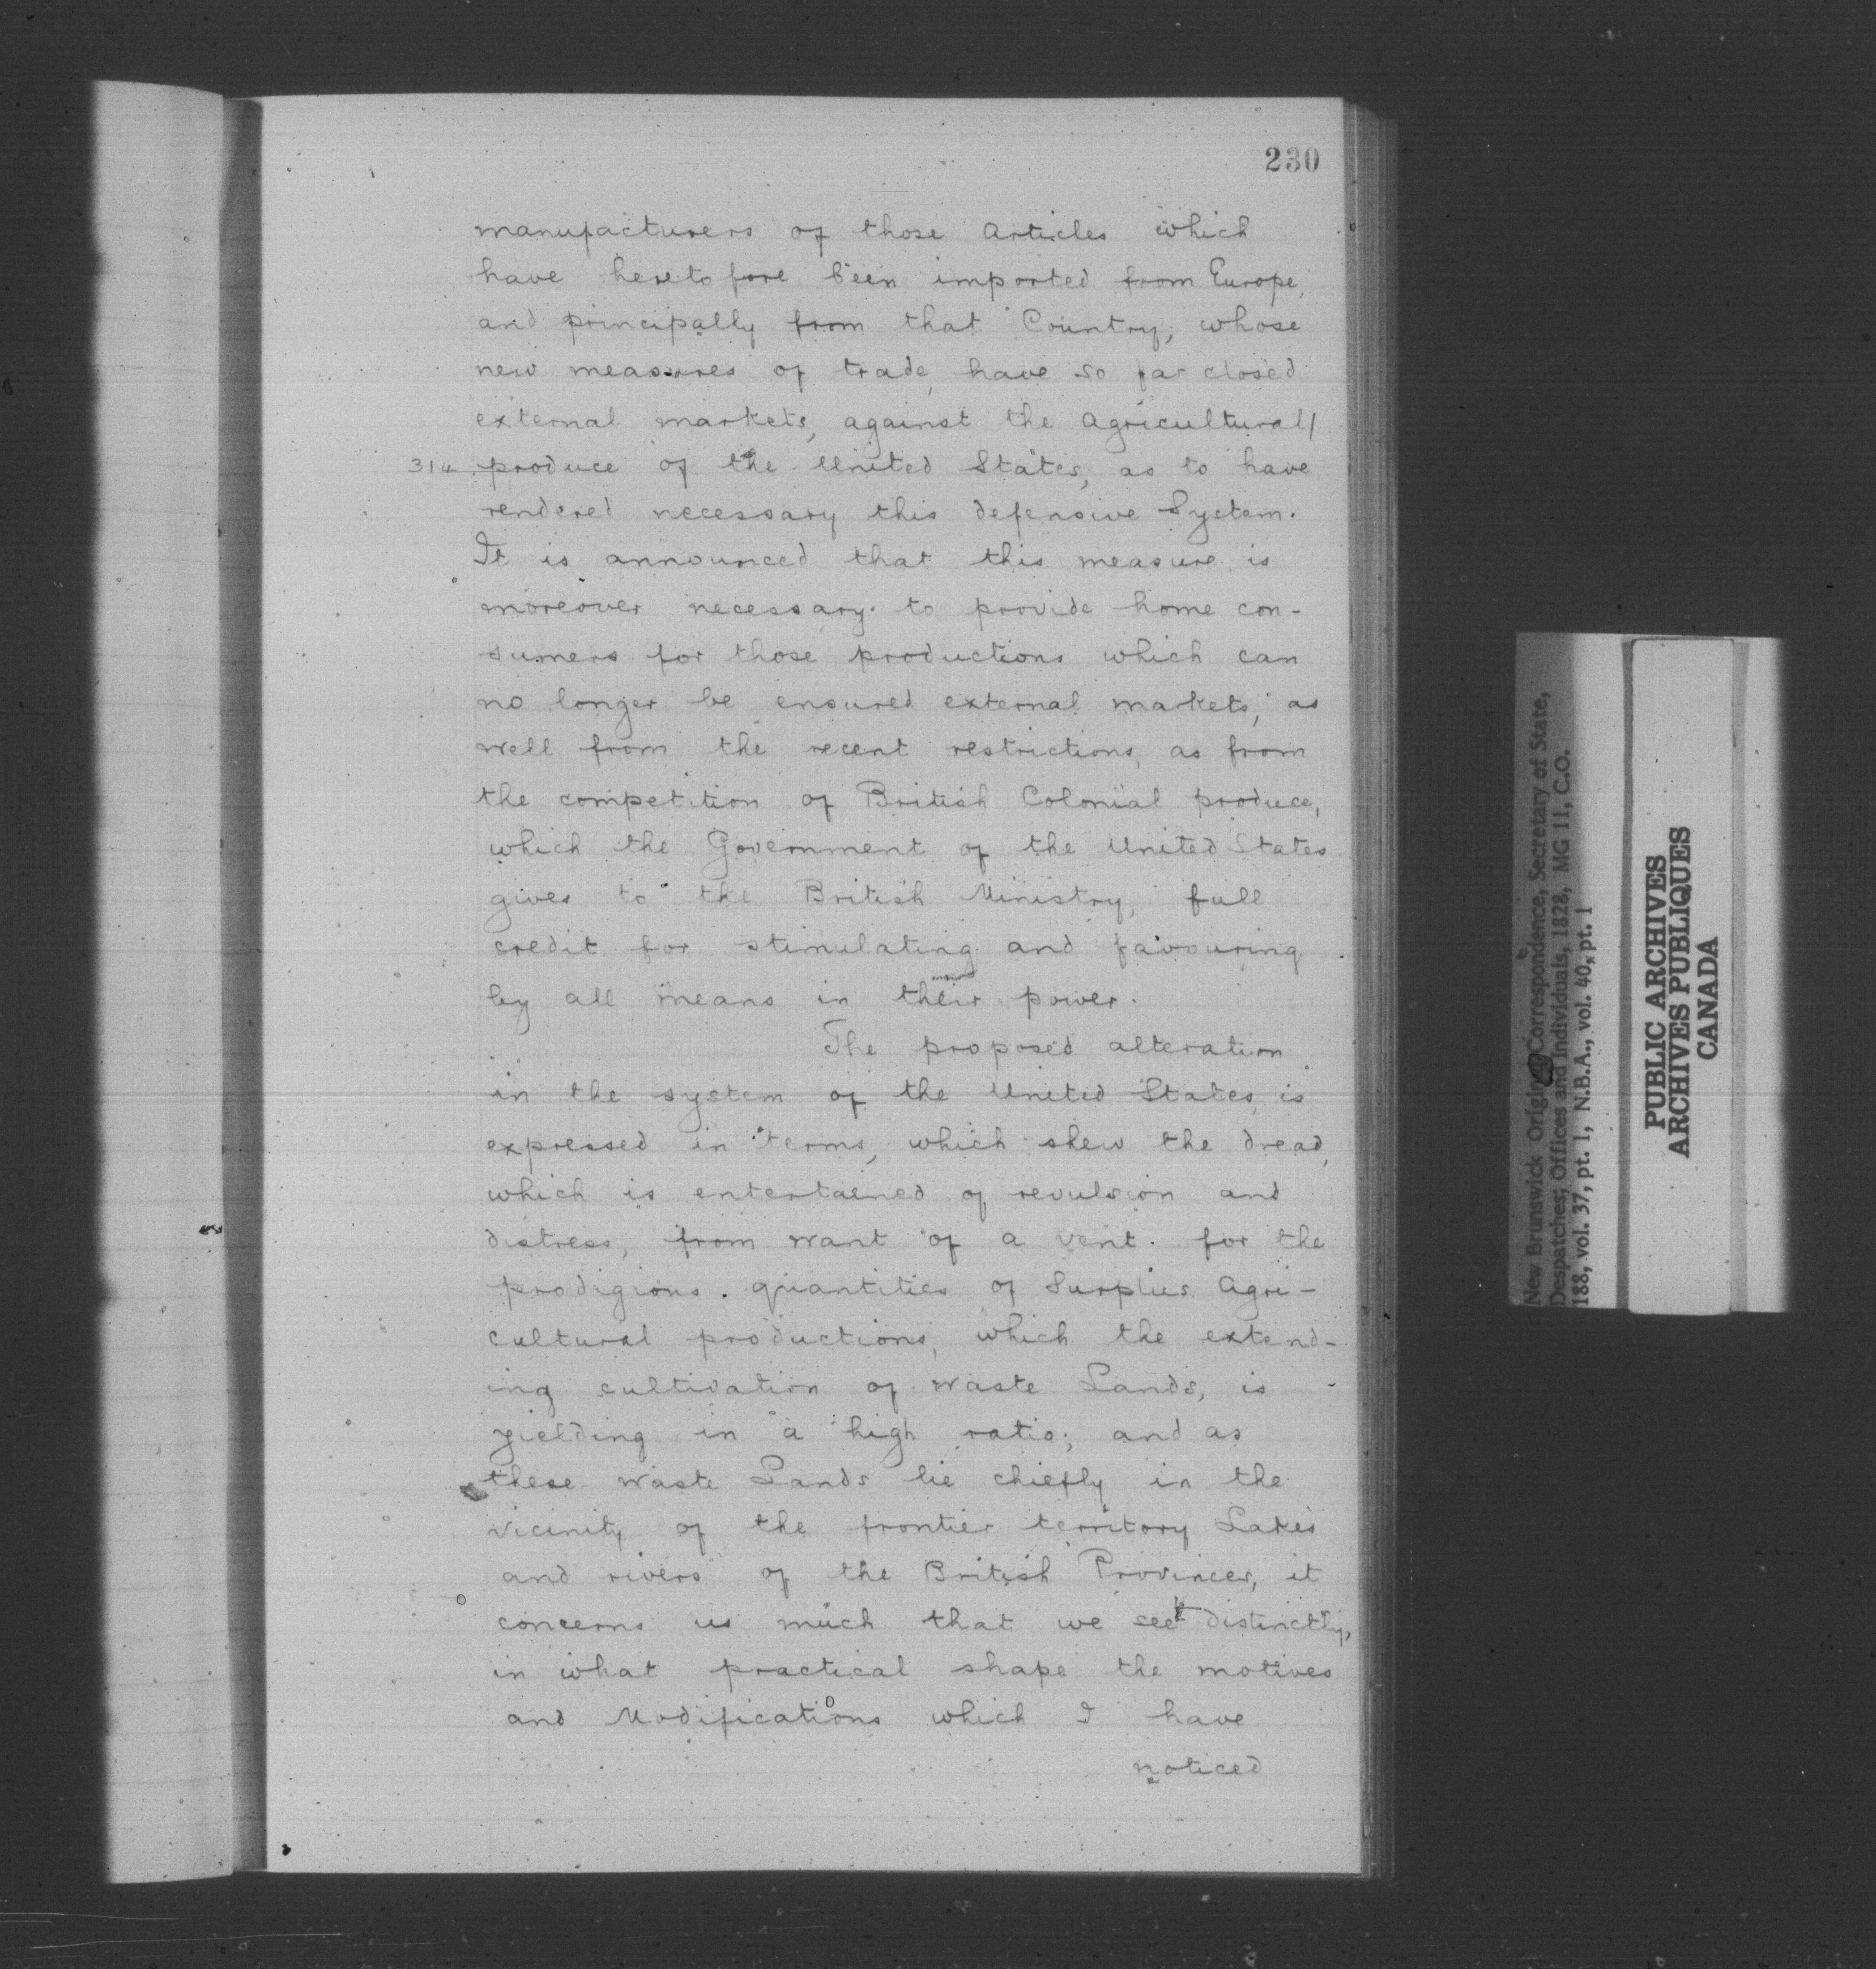 230
manufacturers of those Articles which
have heretofore been imported from Europe,
and principally from that Country, whose
new measures of trade, have so far closed
external markets, against the Agricultural/
314 produce of the United States, as to have
rendered necessary this defensive System.
It is announced that this measure is
moreover necessary to provide home con-
sumers for those productions which can
no longer be ensured external markets, as
well from the recent restrictions, as from
the competition of British Colonial produce,
which the Government of the United States
gives to the British Ministry, full
credit for stimulating and favouring
by all means in their power.
The proposed alteration
in the system of the United States, is
expressed in terms, which shew the dread,
which is entertained of revulsion and
distress, from want of a vent for the
prodigious quantities of Surplus Agri-
cultural productions, which the extend-
ing cultivation of waste Lands, is
yielding in a high ratio; and as
these waste Lands lie chiefly in the
vicinity of the frontier territory Lakes
and rivers of the British Provinces, it
concerns us much that we see distinctly,
in what practical shape the motives
and Modifications which I have
noticed
New Brunswick Original Correspondence, Secretary of State,
Despatches; Offices and Individuals, 1828, MG 11, C.O.
188, vol. 37, pt. 1, N.B.A., vol. 40, pt. 1
PUBLIC ARCHIVES
ARCHIVES PUBLIQUES
CANADA